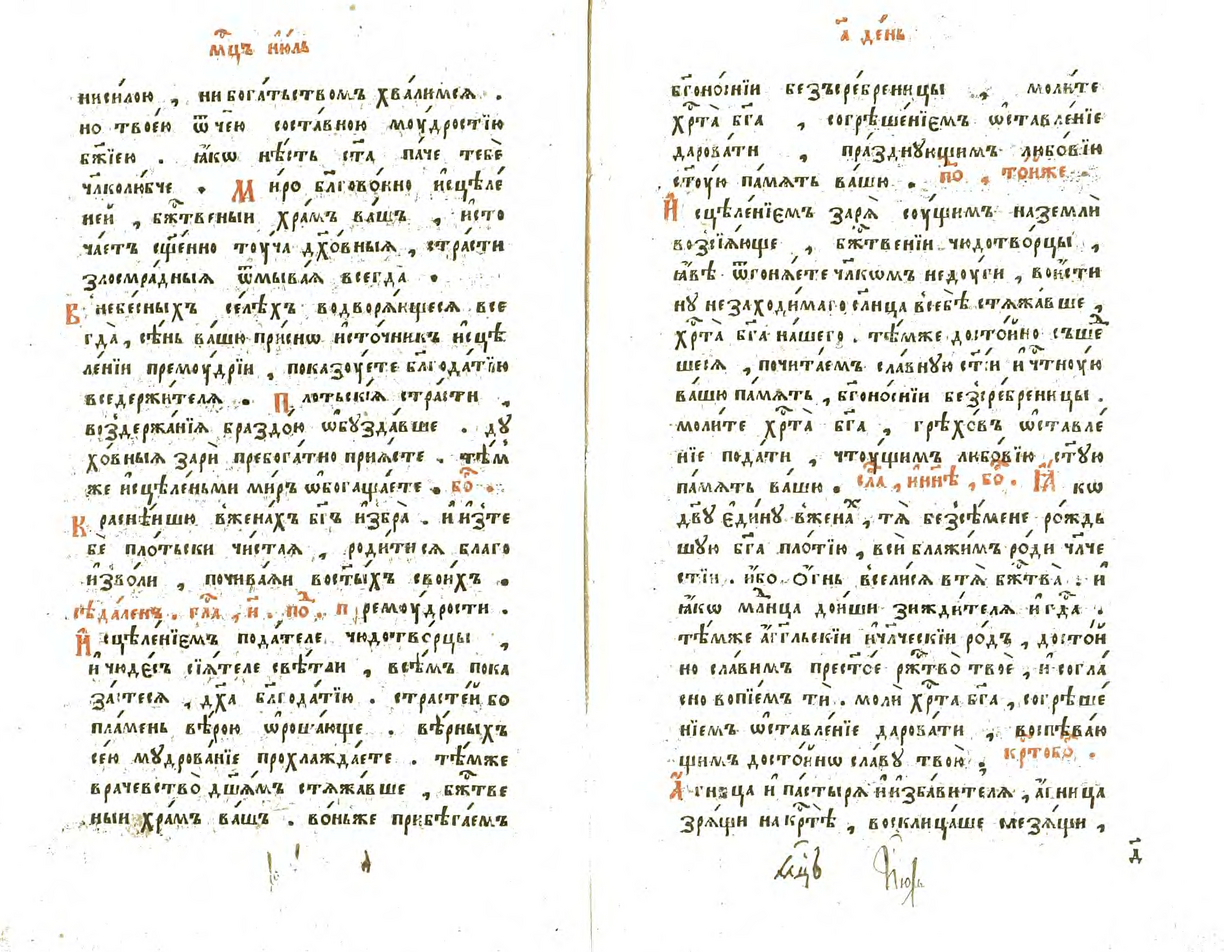 мⷭ҇цъ ию́ль
нисилою , нибога́тьствомъ хва́лимсѧ .
но твое́ю ѿче́ю соста́вною моу́дростїю
бж҃їею . ꙗ҆́кѡ нѣ́сть ст҃а па́че тебѐ
чл҃колю́бче . Ми́ро бл҃гово́нно и҆сцѣле́
ней , бж҃твеныи хра́мъ ва́шъ , и҆сто
ча́етъ сщ҃е́нно тоу́ча дх҃о́вныѧ , стра́сти
злосмра́дныѧ ѿмыва́ѧ всегда̀ .
В небе́сныхъ селѣ́хъ водворѧ́ющесѧ все
гда̀ , сѣ́нь ва́шю при́снѡ и҆сто́чникъ и҆сцѣ
ле́нїи премоу́дрїи , показоу́ете бл҃года́тїю
вседержи́телѧ . Пло́тьскїѧ стра́сти ,
воздержа́нїѧ браздо́ю ѡ҆бузда́вше . ду
хо́вныѧ зарѝ пребога́тно прїѧ́сте . тѣ́м
же и҆сцѣле́ньми ми́ръ ѡ҆богаща́ете . бо҃ .
Краснѣ́ишю вже́нахъ бг҃ъ и҆збра̀ . и҆и҆зте
бѐ пло́тьски чи́стаѧ , роди́тисѧ благо
и҆зво́ли , почива́ѧи востⷩ҇ы́хъ свои́хъ .
сѣда́ленъ . гла҃ , и҃ . поⷣ . премоу́дрости .
И҆сцѣле́нїемъ пода́теле , чюдотво́рцы ,
и҆чюде́съ сїѧ́теле свѣ́таи , всѣ́мъ пока
за́стесѧ , дх҃а бл҃года́тїю . страсте́й бо
пла́мень вѣ́рою ѡ҆роша́юще . вѣ́рныхъ
се́ю мꙋдрова́нїе прохлажда́ете . тѣ́мже
врачевство̀ дш҃ѧ́мъ стѧжа́вше , бж҃тве
ныи хра́мъ ва́шъ . во́ньже прибѣга́емъ
а҃ де́нь
бг҃оно́снїи безъсре́бреницы , моли́те
хрⷭ҇та̀ бг҃а , согрѣше́нїемъ ѡ҆ставле́нїе
дарова́ти , пра́зднꙋющимъ любо́вїю
ст҃ꙋ́ю па́мѧть ва́шю . поⷣ , то́йже .
И҆сцѣле́нїемъ зарѧ̀ соу́щимъ наземлѝ
возсїѧ́юще , бж҃твенїи чюдотво́рцы ,
ꙗ҆́вѣ ѿгонѧ́ете чл҃кѡмъ недоу́ги , вои́сти
нꙋ незаходи́маго сл҃нца всебѣ̀ стѧжа́вше ,
хрⷭ҇та̀ бг҃а на́шего . тѣ́мже досто́йно съшеⷣ
шесѧ , почита́емъ сла́внꙋю ст҃і́и и҆чтноу́ю
ва́шю па́мѧть , бг҃оно́снїи безсре́бреницы .
моли́те хрⷭ҇та̀ бг҃а , грѣхо́въ ѡ҆ставле́
нїе пода́ти , чтоу́щимъ любо́вїю ст҃ꙋ́ю
па́мѧть ва́шю . сла҃ , и҆ни́нѣ , бо҃ . Ꙗ҆́кѡ
дв҃ꙋ є҆ди́нꙋ вжена́ⷯ , тѧ̀ безсѣ́мене ро́ждь
шꙋю бг҃а пло́тїю , всѝ блажи́мъ ро́ди чл҃че
стїи . и҆́бо о҆́гнь всели́сѧ втѧ̀ бж҃тва̀ . и҆
ꙗ҆́кѡ младⷣнца до́иши зижди́телѧ и҆гдⷭ҇а .
тѣ́мже а҆́гг҃льскїи и҆чл҃ческїи ро́дъ , досто́й
но сла́вимъ престо́е рж҃тво̀ твоѐ , и҆согла́
сно вопїе́мъ ти . молѝ хрⷭ҇та̀ бг҃а , согрѣше́
нїемъ ѡ҆ставле́нїе дарова́ти , воспѣва́ю
щимъ досто́йнѡ сла́вꙋ твою̀ . крⷭ҇тобоⷣ .
А҆́гнца и҆ па́стырѧ и҆и҆зба́вителѧ , а҆́гница
зрѧ́щи накрⷭ҇тѣ̀ , восклица́ше слезѧ́щи ,
д҃
мⷭ҇цъ Июль